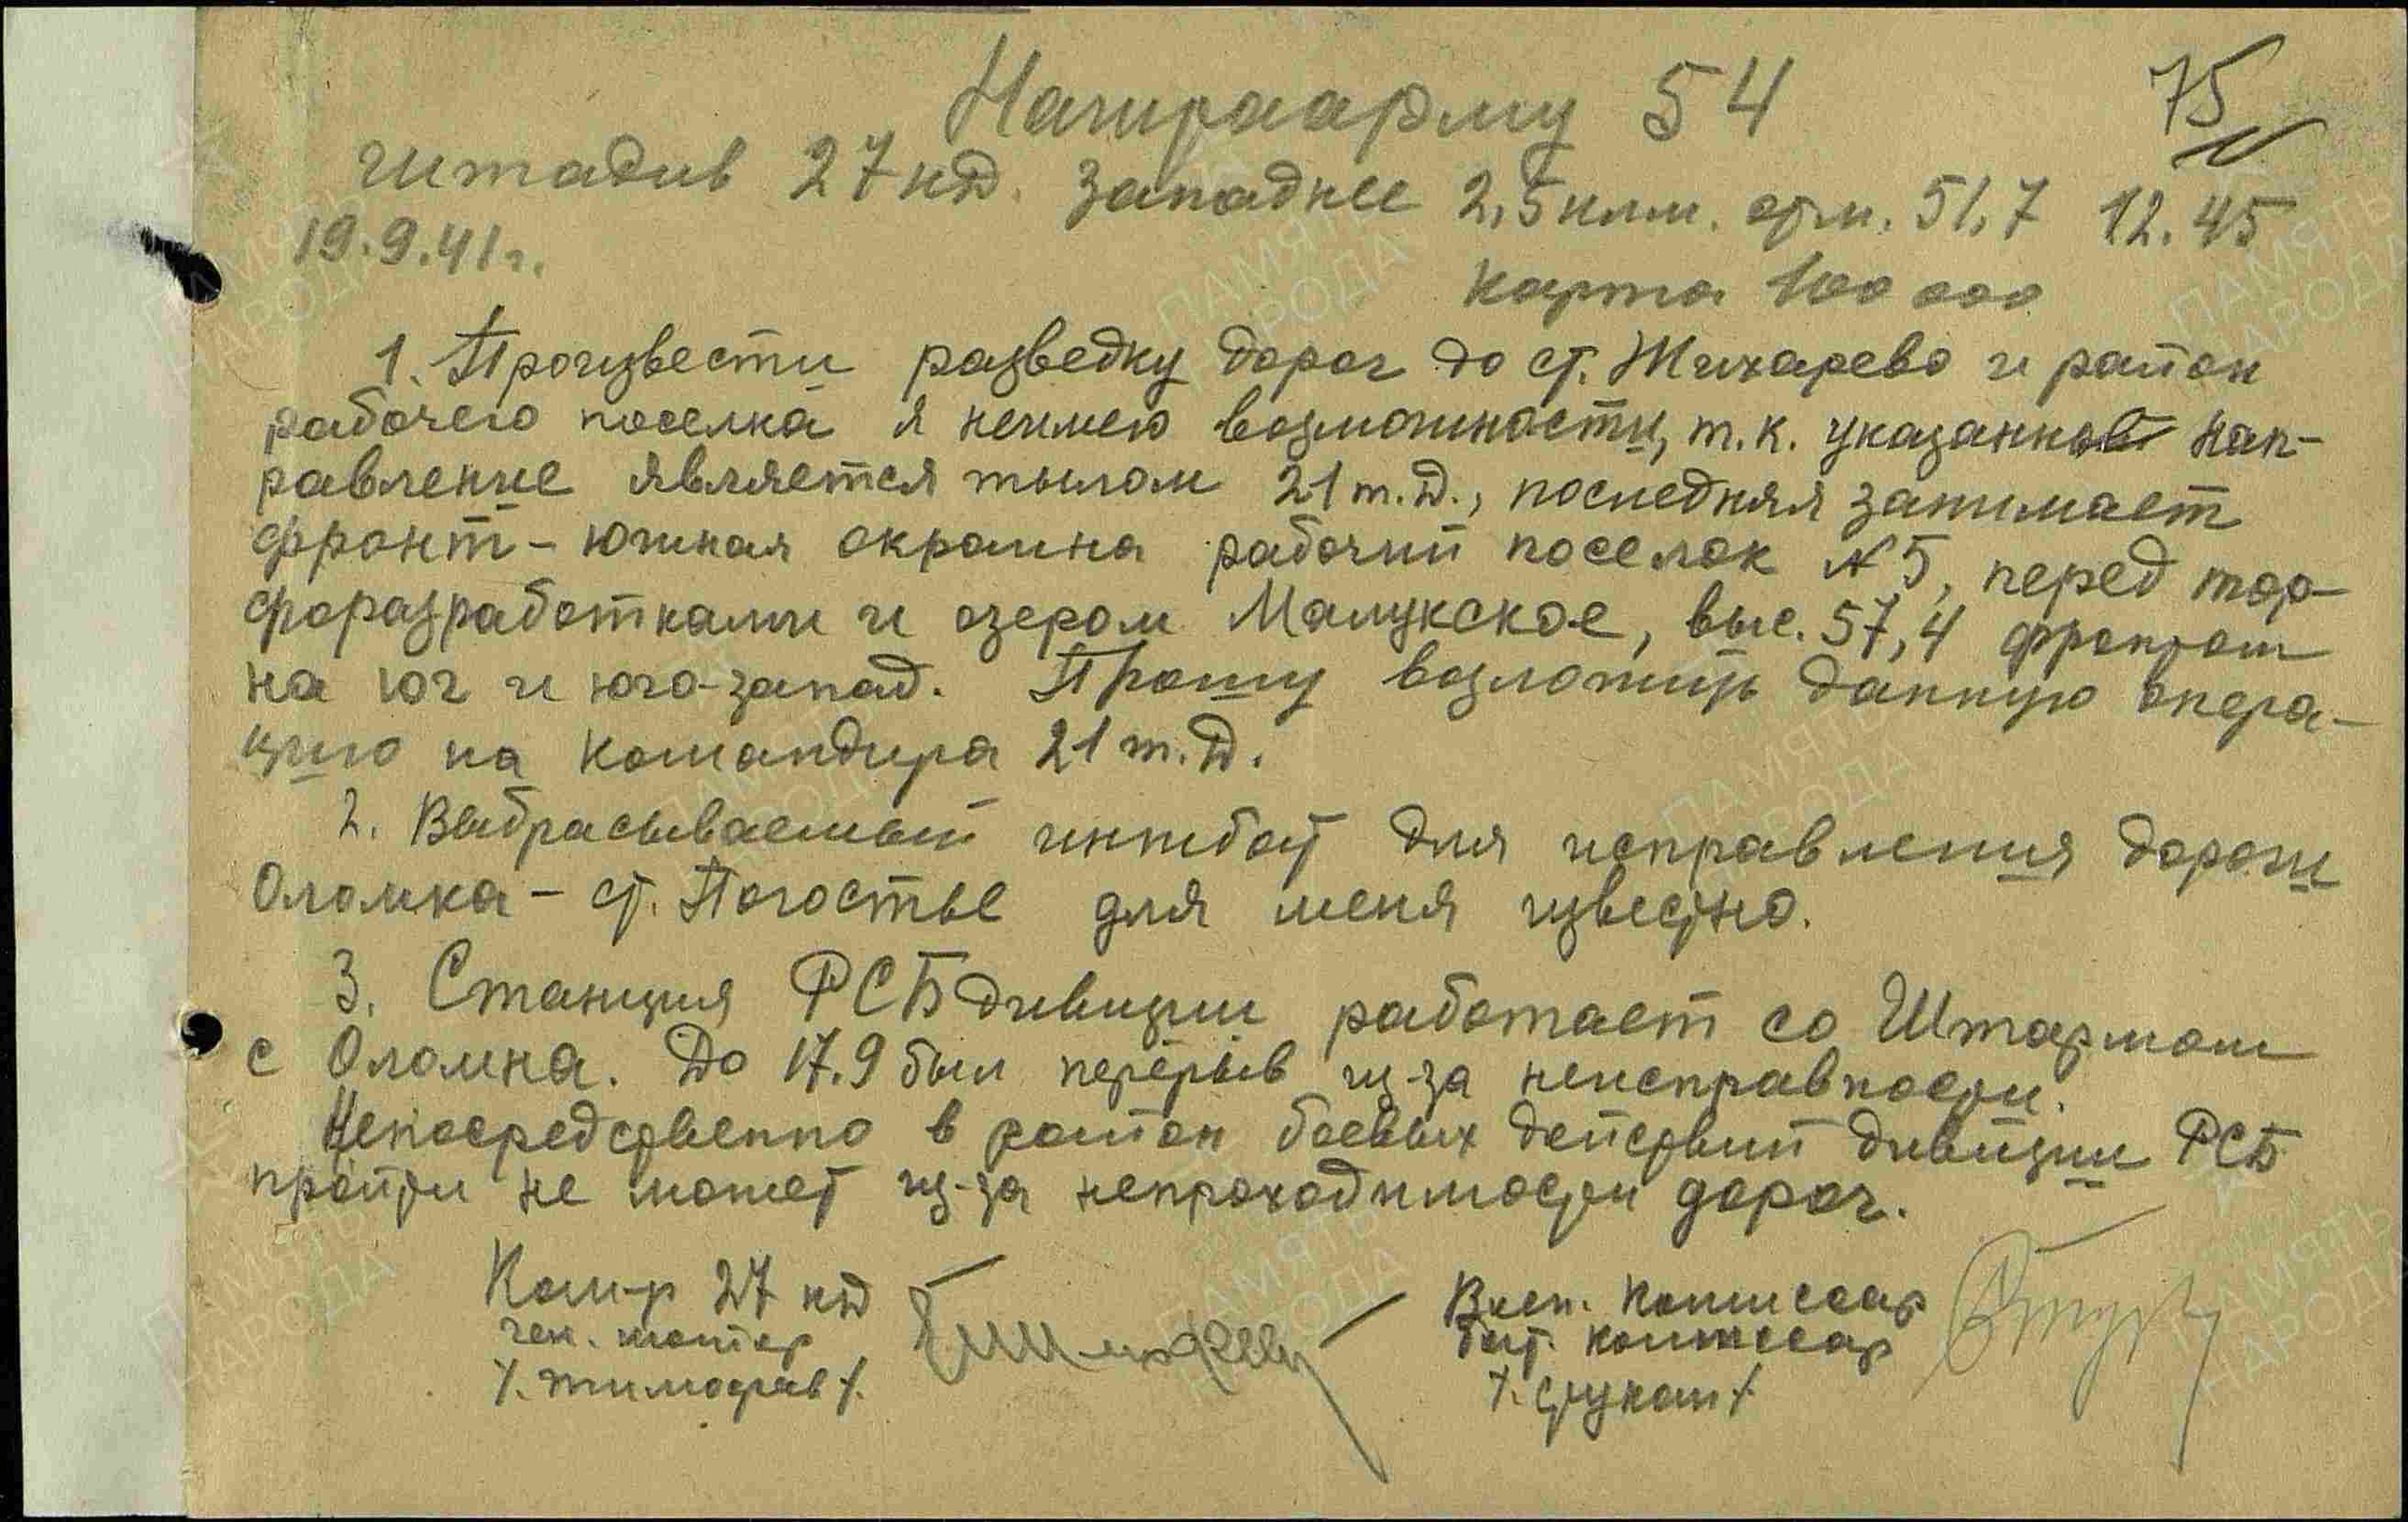 Наштаарму 54
75
штадив 27 кд. западнее 2,5 клм. отм. 51,7 12.45
19.9.41 г.
карта 100 000
1. Произвести разведку дорог до ст. Жихарево и район
рабочего поселка я неимею возможности, т.к. указанное нап-
равление является тылом 21 т.д., последняя занимает
фронт - южная окраина рабочий поселок №5, перед тор-
форазработками и озером Малукское, выс. 57,4 фронтом
на юг и юго-запад. Прошу возложить данную опера-
цию на командира 21 т.д.
2. Выбрасываемый инжбат для исправления дороги
Оломна - ст. Погостье для меня известно.
3. Станция РСБ дивизии работает со Штармом
с Оломна. До 17.9 был перерыв из-за неисправности.
Непосредственно в район боевых действий дивизии РСБ
пройти не может из-за непроходимости дорог.
Ком-р 27 кд
ген. майор
/. Тимофеев /.
Воен. Комиссар
бат. комиссар
/. Стукан /
ПАМЯТЬ
НАРОДА